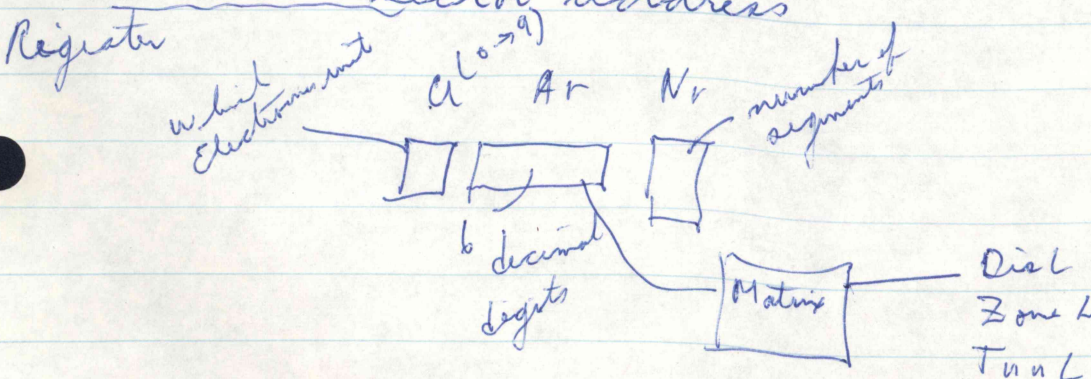 Address
Register
which
Electronic unit
U (0→9) Ar Nr
number of
segments
6 decimal
digits
Matrix
Disc
Zone